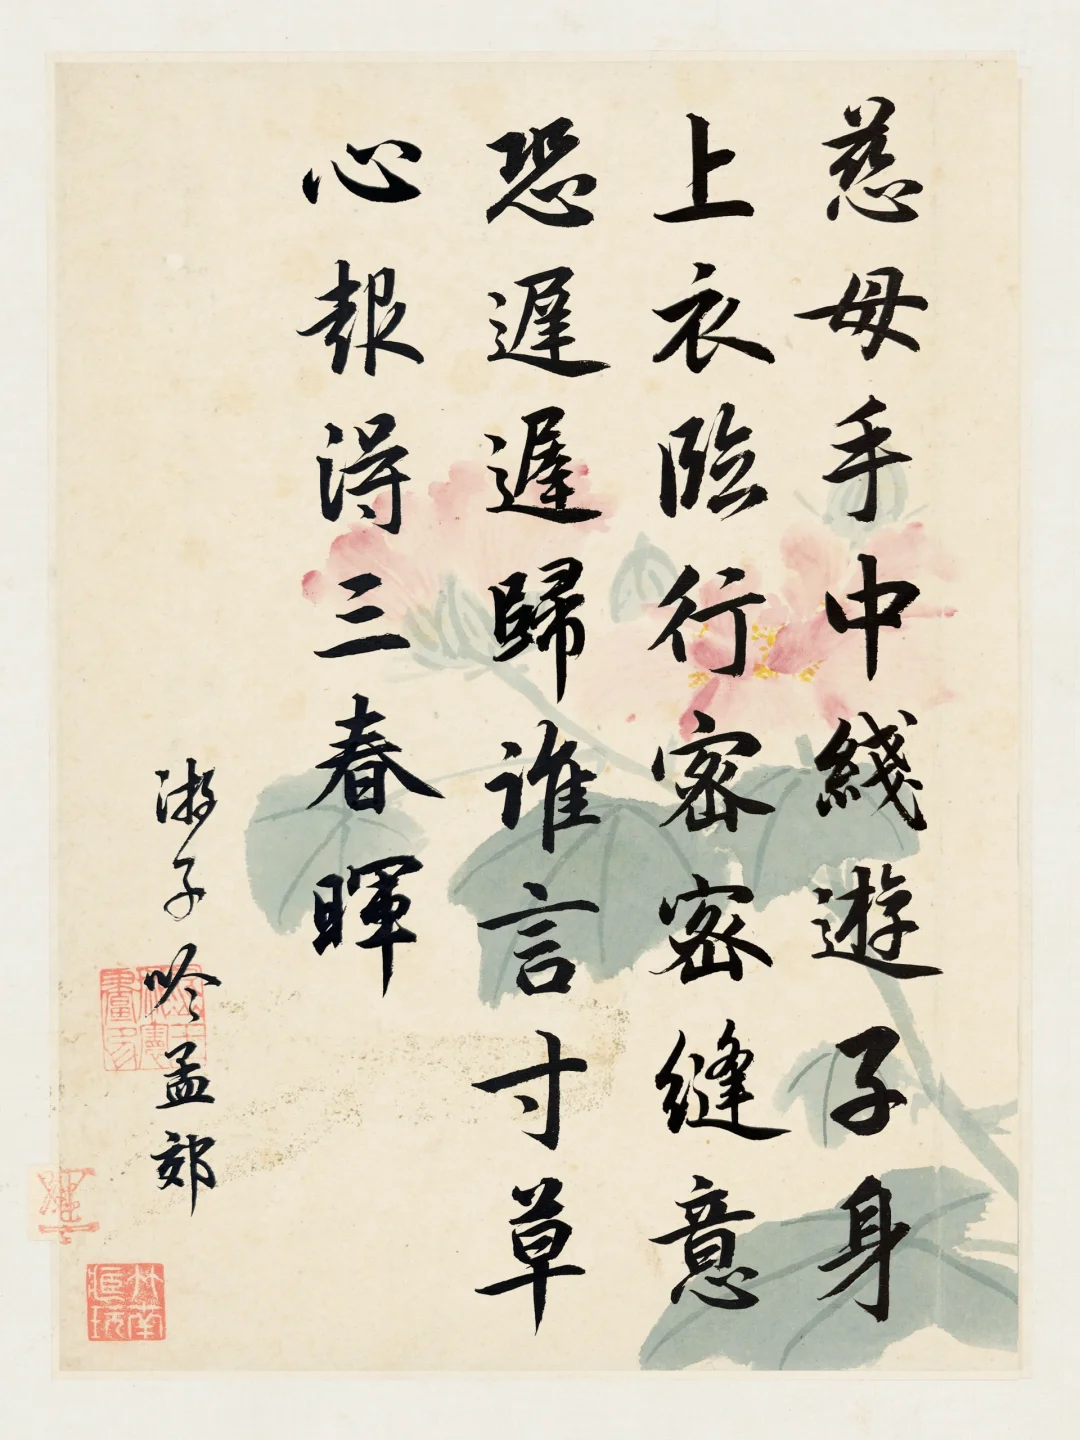 慈母手中綫遊子身
上衣臨行密密縫意
恐遲遲歸誰言寸草
心報得三春暉
游子吟孟郊